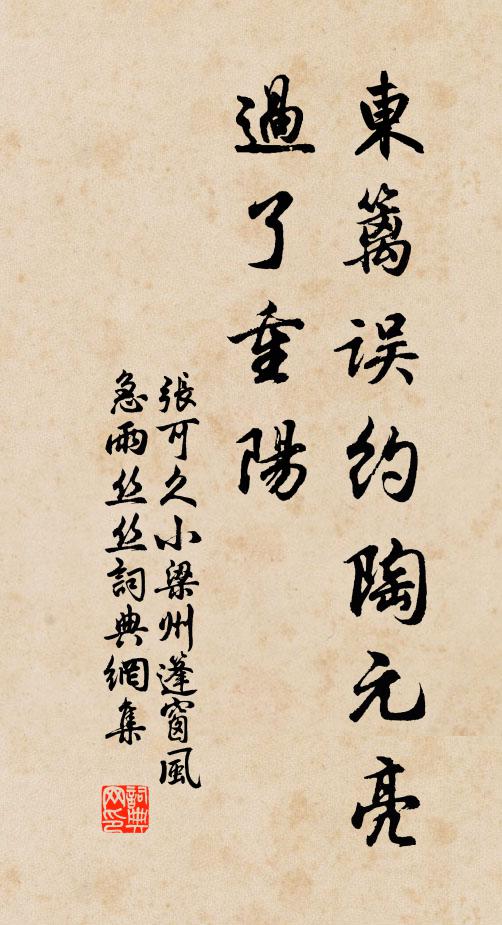 東籬误约陶元亮
過了重陽
張可久小梁州蓬窗風
急雨丝丝詞典網集
詞典网印